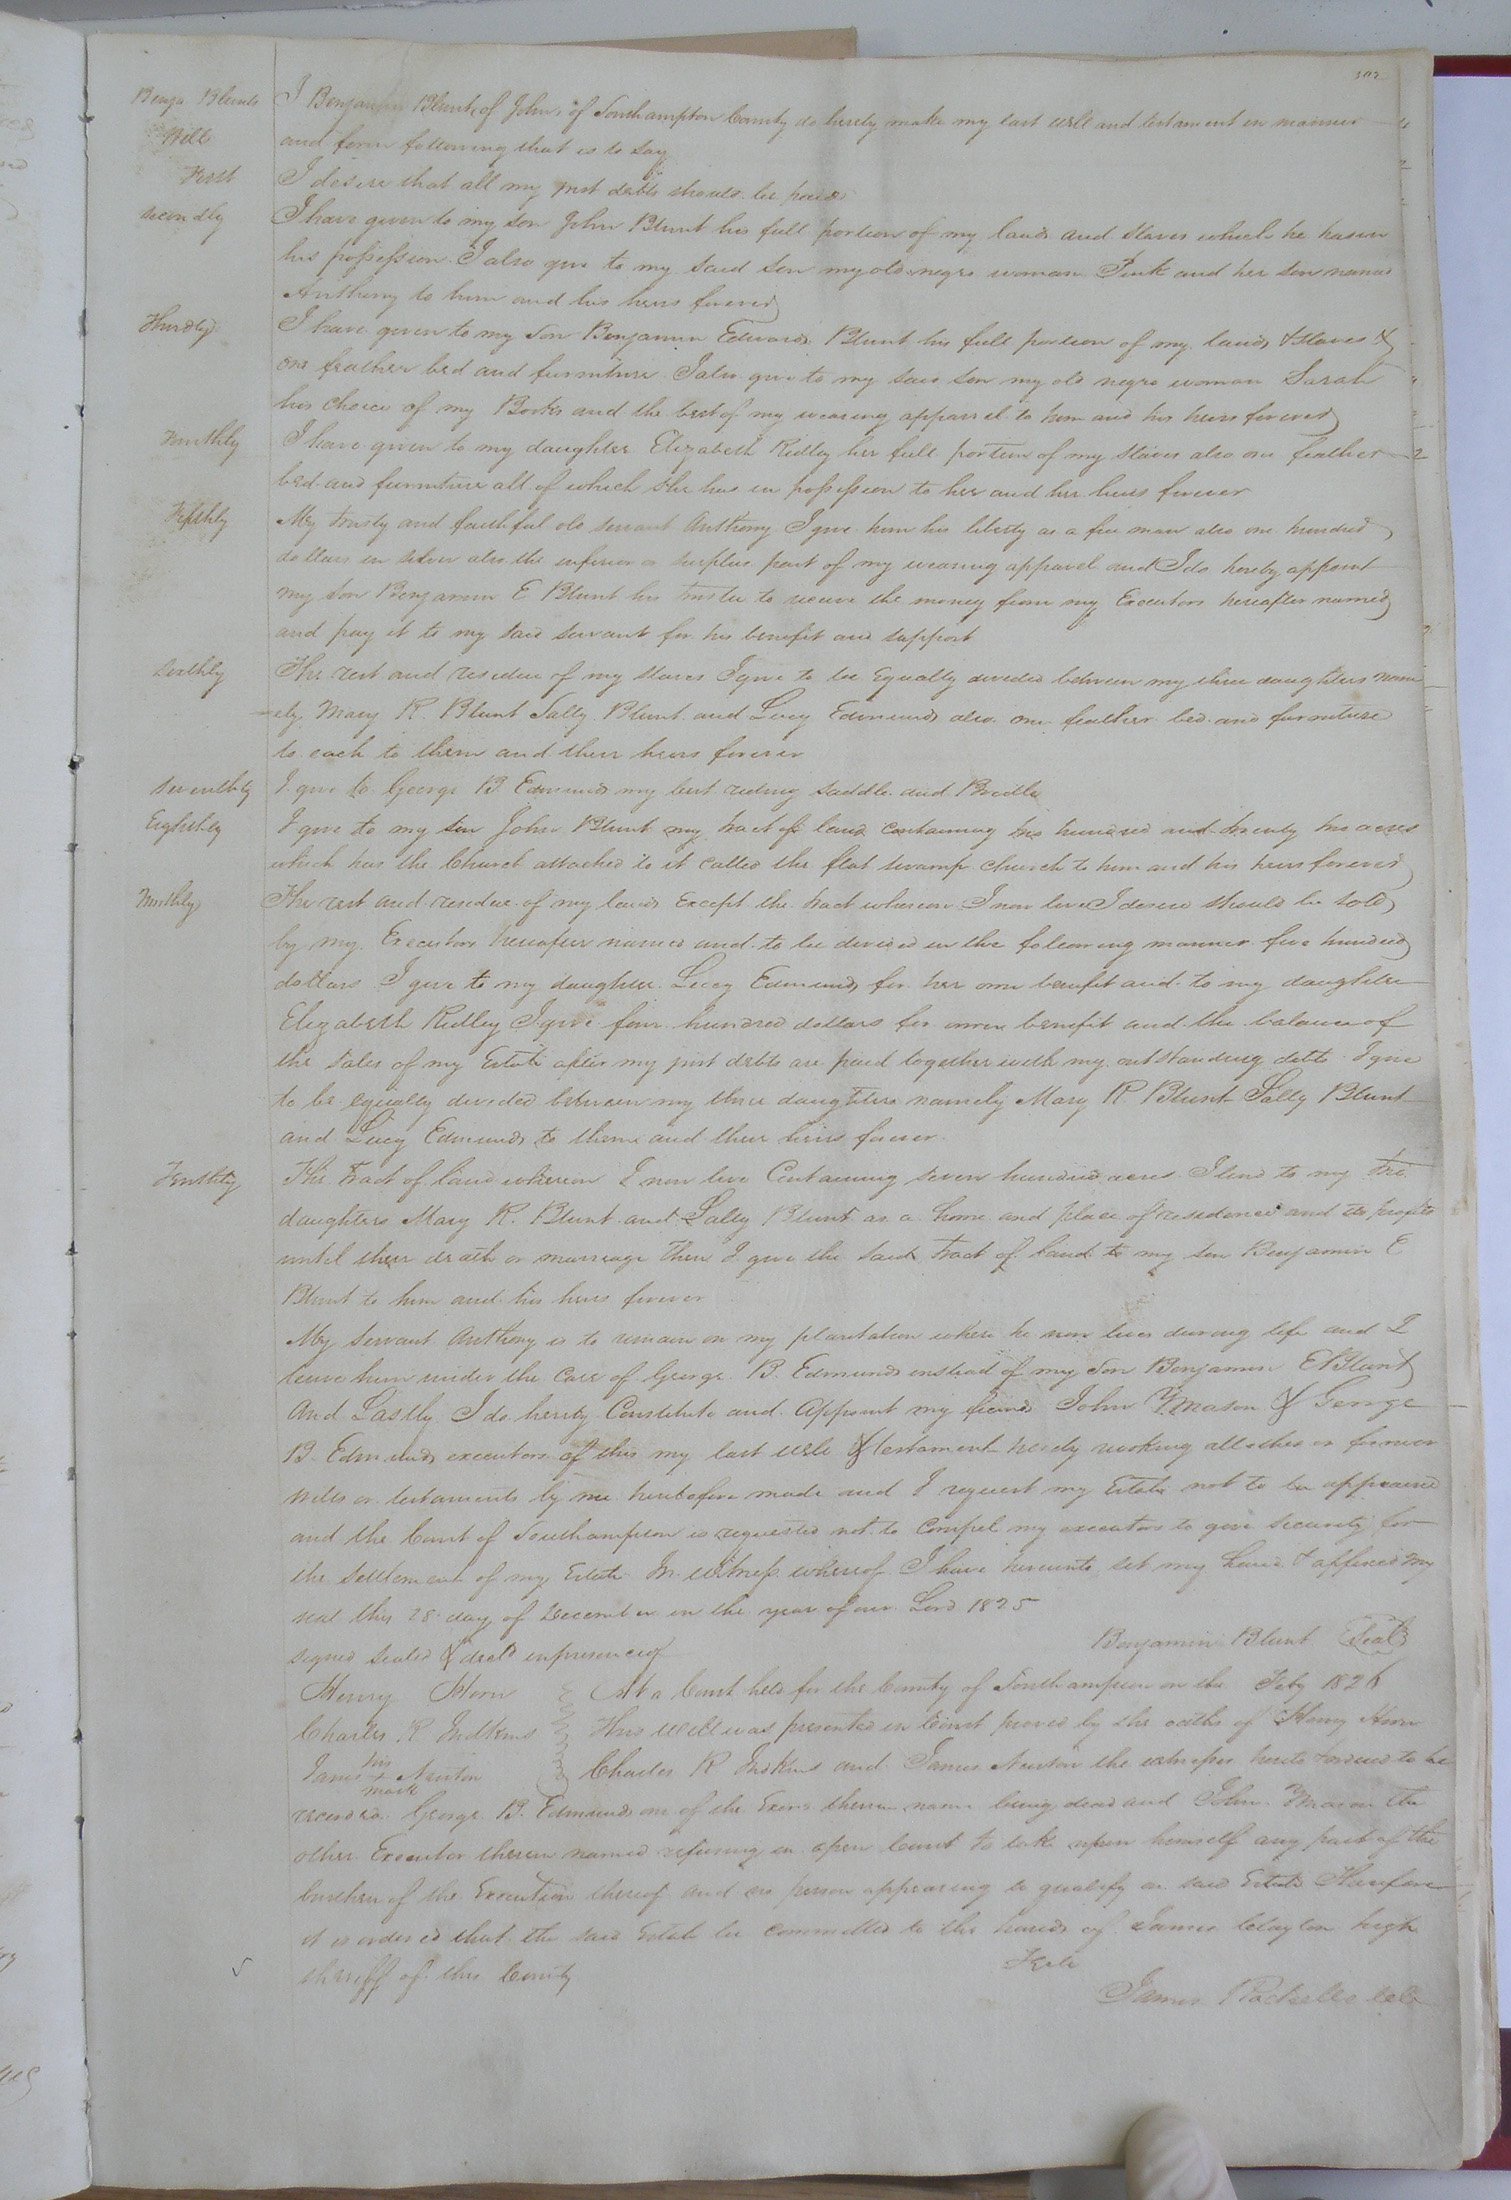 Benja Blunts I Benjamin Blunt, of John, of Southampton County do hereby make my last will and testament in manner
Will and form following that is to say
First I desire that all my just debts should be paid
secondly I have given to my son John Blunt his full portion of my lands and slaves which he has in
his possession. I also give to my said son my old negro woman and her son named
Anthony to him and his heirs forever
Thirdly I have given to my son Benjamin Edwards Blunt his full portion of my lands & slaves &
one feather bed and furniture I also give to my said son my old negro woman Sarah
his choice of my Books and the best of my wearing apparrel to him and his heirs forever
Fourthly I have given to my daughter Elizabeth Ridley her full portion of my slaves also one feather
bed and furniture all of which she has in possession to her and her heirs forever
Fifthly My trusty and faithful old servant Anthony I give him his liberty as a free man also one hundred
dollars in silver also the inferior or surplus part of my wearing apparel and I do hereby appoint
my son Benjamin E Blunt his trustee to receive the money from my Executors hereafter named
and pay it to my said servant for his benefit and support
Sixthly The rest and residue of my slaves I give to be Equally divided between my three daughters name
ely, Mary R. Blunt Sally Blunt and Lucy Edmunds also one feather bed and furniture
to each to them and their heirs forever
Seventhly I give to George B Edmunds my best riding saddle and Bridle
Eighthly I give to my son John Blunt my tract of land containing two hundred and twenty two acres
which has the Church attached to it called the flat swamp church to him and his heirs forever
Ninthly The rest and residue of my lands Except the tract whereon I now live I desire should be sold
by my Executors hereafter named and to be divided in the following manner five hundred
dollars I give to my daughter Lucy Edmunds for her own benefit and to my daughter
Elizabeth Ridley I give four hundred dollars for benefit and the balance of
the sales of my Estate after my just debts are paid together with my outstanding debts I give
to be equally divided between my three daughters namely Mary R. Blunt Sally Blunt
and Lucy Edmunds to them and their heirs forever
Tenthly The tract of land whereon I now live Containing seven hundred acres I lend to my two
daughters Mary R. Blunt and Sally Blunt as a home and place of residence and its profits
until their death or marriage then I give the said tract of land to my son Benjamin E
Blunt to him and his heirs forever
My servant Anthony is to remain on my plantation where he now lives during life and I
leave him under the care of George B. Edmunds instead of my son Benjamin E Blunt
And Lastly I do hereby Constitute and Appoint my friends John Y Mason & George
B. Edmunds executors of this my last will & testament hereby revoking all other or former
wills or testaments by me heretofore made and I request my Estate not to be appraised
and the Court of Southampton is requested not to compel my executors to give security for
the settlement of my Estate In witness whereof I have hereunto set my hand & affixed my
seal this 28 day of December in the year of our Lord 1825
Benjamin Blunt Seal
signed sealed & deld in presence of
Henry Horn At a Court held for the County of Southampton on the Feby 1826
Charles R Judkins This will was presented in Court proved by the oaths of Henry Horn
James his + mark Newton Charles R Judkins and James Newton the witnesses hereto to be
recorded. George B. Edmunds one of the Exors therein name being dead and John Y Mason the
other Executor therein named refusing in open Court to take upon himself any part of the
burthen of the Execution thereof and no person appearing to qualify on said Estate Therefore
it is ordered that the said Estate be committed to the hands of James Clayton high
sheriff of this County
Teste
James Rochelle